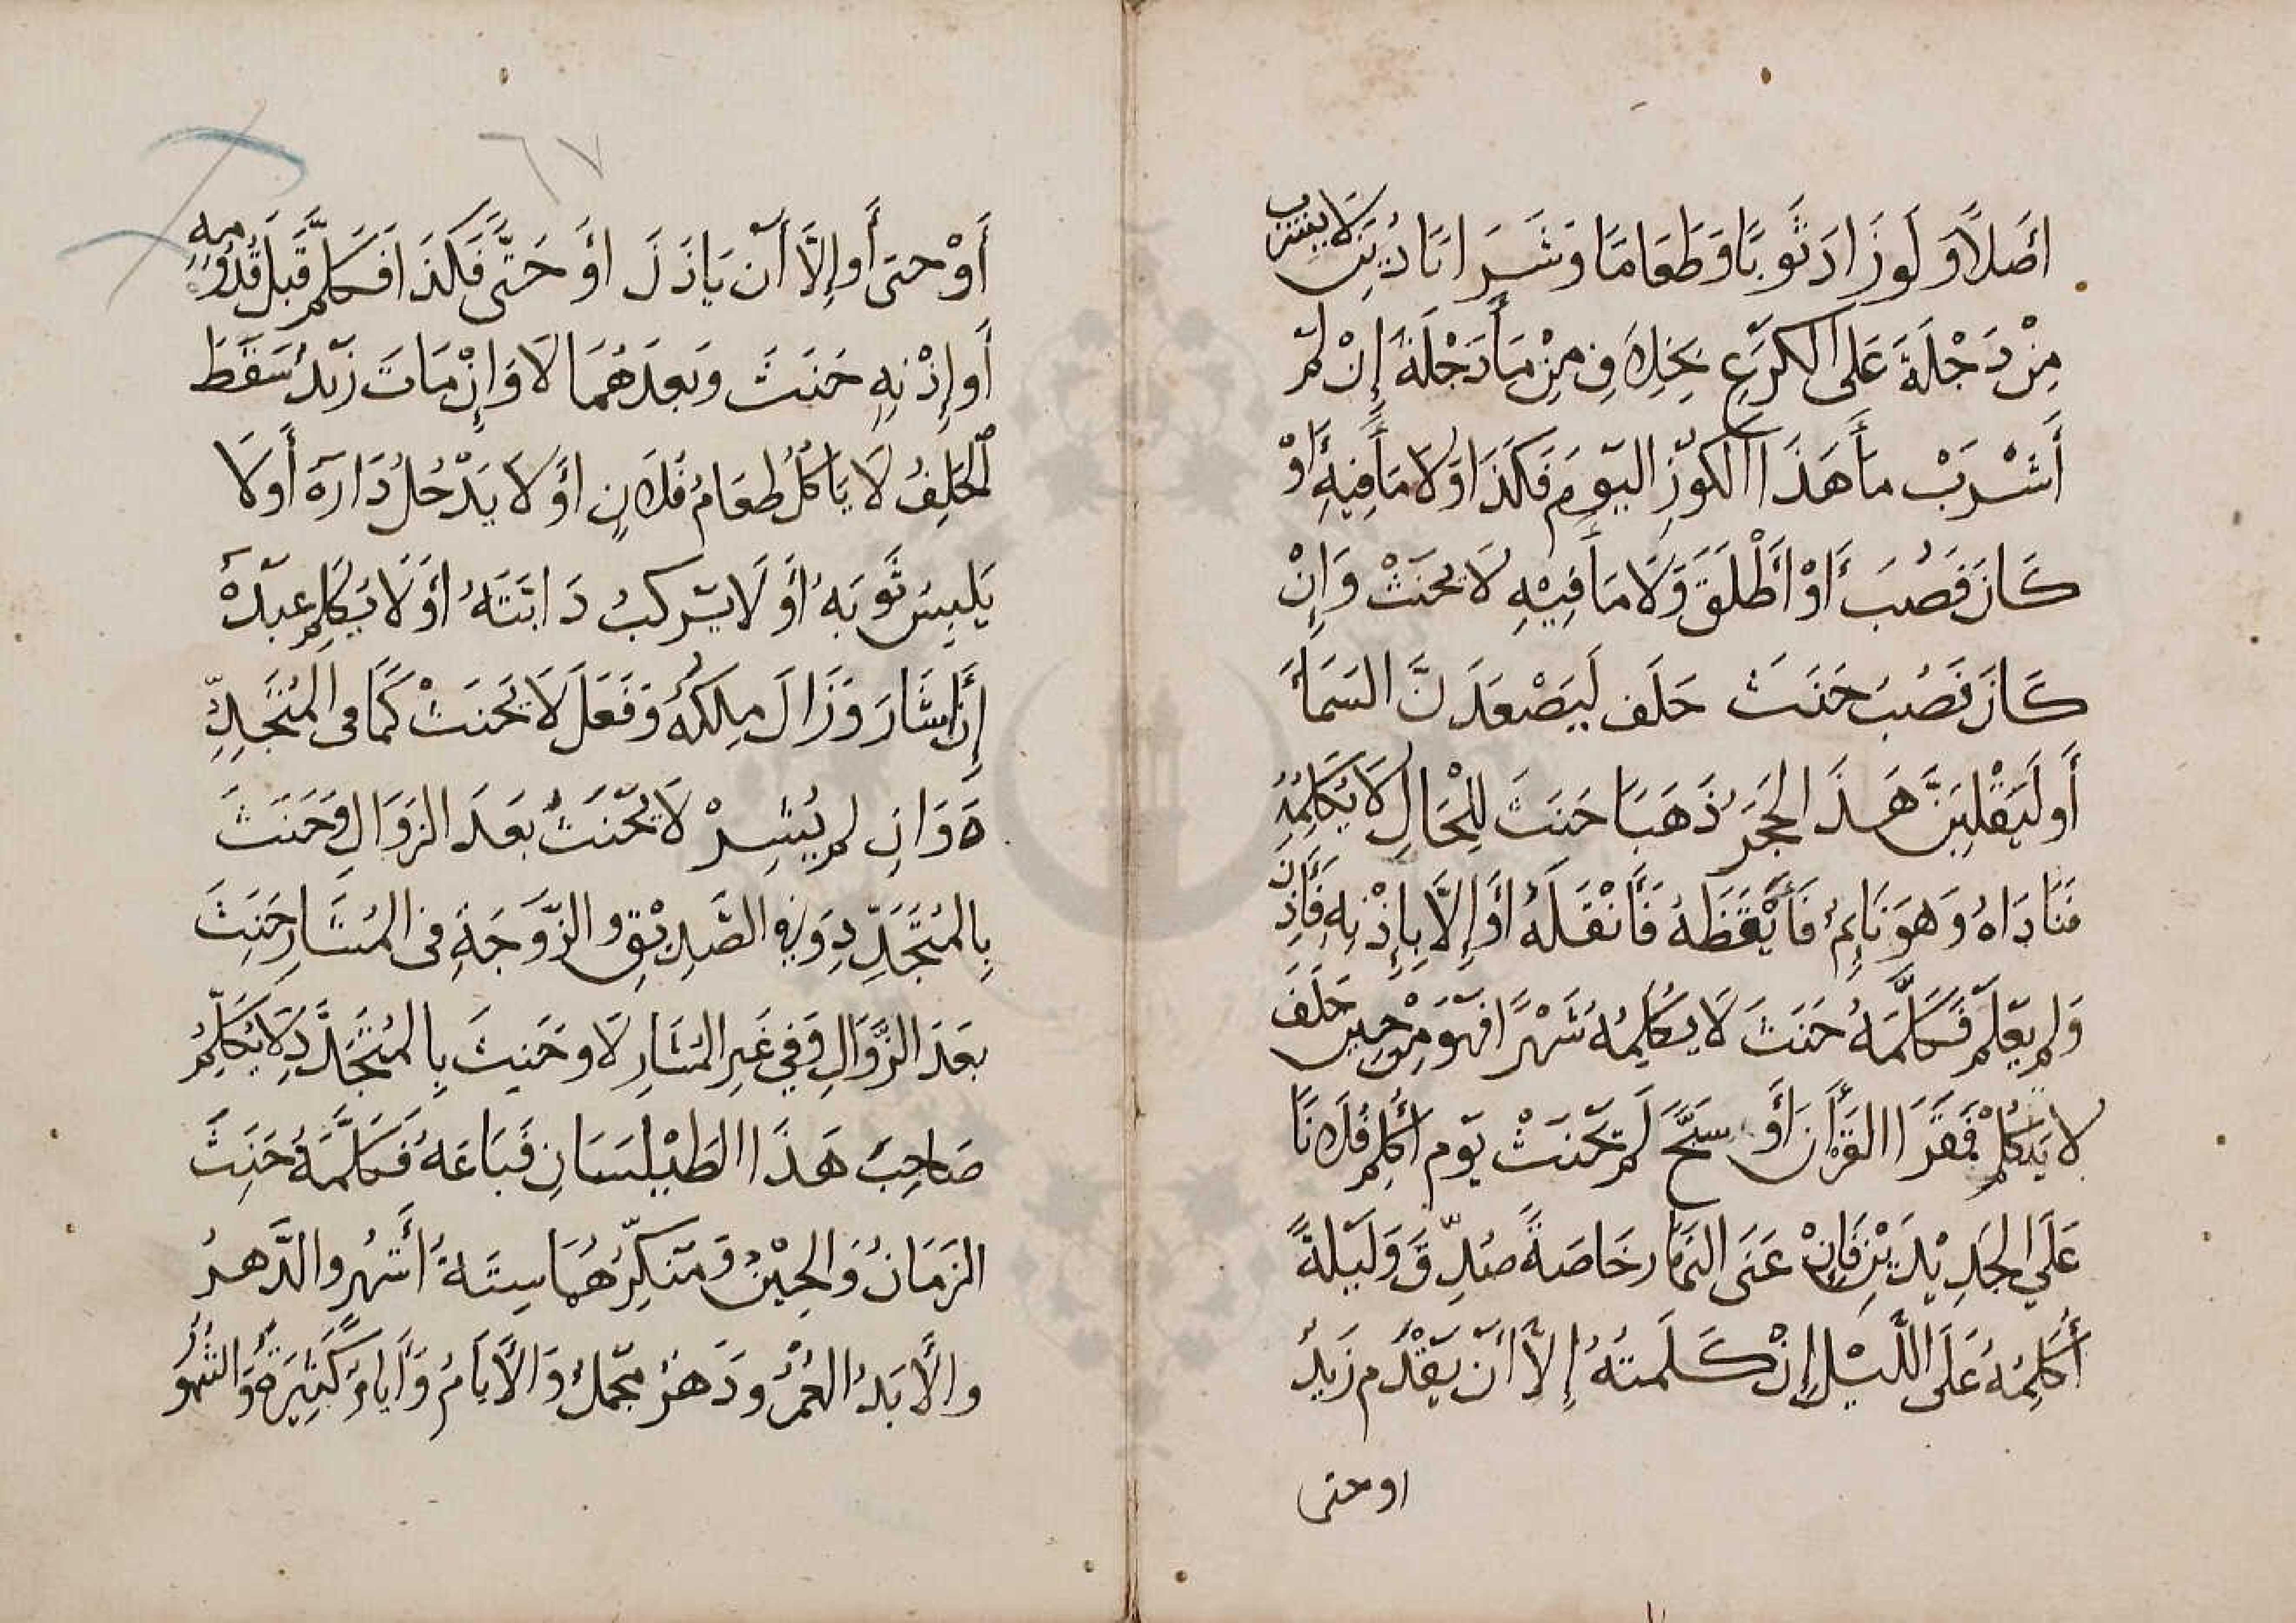 أصَلاً وَلَوزَادَ ثَوبًا وَطَعَامًا وَشَرَابًا دُيِّنَ لَا يَشرَب
مِنْ دَجْلَةَ عَلَى الكَرَعِ بِخِلَافِ مِنْ مَاءِ دَجْلَةَ إِنْ لَمْ
أَشْرَبْ مَاءَ هَذَا الكُوْزِ اليَوْمَ فَكَذَا وَلَا مَاءَ فِيهِ أَوْ
كَانَ فَصُبَّ أَوْ أَطْلَقَ وَلَا مَاءَ فِيْهِ لَا يَحنَثْ وَإِنْ
كَانَ فَصُبَّ حَنَثَ حَلَفَ لَيَصْعَدَنَّ السَمَاءَ
أَو لَيَقْلِبَنَّ هَذَ الحَجَرَ ذَهَبًا حَنَثَ لِلْحَالِ لَا يُكَلِّمُهُ
فَنَادَاهُ وَهُوَ نَائِمٌ فَأَيْقَظَهُ فَأَنْقَلَهُ أَوإِلَّا بِإِذْنِهِ فَأَذِنَ
وَلَم يَعْلَمْ فَكَلَّمَهُ حَنَثَ لَا يُكَلِّمُهُ شَهْرًا فَهُوَ مِنْ حِيْنِ حَلَفَ
لَا يَتَكَلَّمُ فَقَرَا القُرْأَنَ أَو سَبَّحَ لَم يَحْنَثْ يَوْم أُكَلِّمُ فُلَانًا
عَلَي الجَدِيْدَيْنِ فَإِنْ عَنَى النَهَارَ خَاصَةً صُدِّقَ وَلَيلَةً
أُكَلِّمُهُ عَلَى اللَّيْلِ إِنْ كَلَمتُهُ إِلَّا أَنْ يَقْدُمَ زَيدٌ
او حتى
٦٧
أَوْ حَتى أَو إِلَّا أَنْ يَاذَنَ أَوْ حَتَّى فَكَذَا فَكَلَّمَ قَبلَ قُدُومِهِ
أَو إِذْنِهِ حَنَثَ وَبَعدَهُمَا لَا وَإِنْ مَاتَ زَيْدٌ سَقَطَ
الحَلِفُ لَا يَاكُلُ طَعَامُ فُلَانٍ أَوْ لَا يَدْخُلُ دَارَهُ أَو لَا
يَلْبِسُ ثَوبَهُ أَوْ لَا يَركَبُ دَابَّتَهُ أَوْ لَا يُكَلِّمُ عَبدَهُ
إِنْ اشَارَ وَزَالَ مِلكُهُ وَفَعَلَ لَا يَحْنَثْ كَمَا فى المُتَجَدِّدِ
ةَ وَانِ لم يُشِرْ لَا يَحْنَثُ بَعَدَ الزَوَالِ وَحَنَثَ
بِالمُتَجَدِّدِ وَفِي الصَدِيْقِ و الزَّوجَةِ فى المُشَارِ حَنِثَ
بَعَدَ الزَّوَالِ وَفِي غَيرِ المُشَارِ لَا وحَنِثَ بِالمُتَجَدِّدِ لَا يُكَلِّمُ
صَاحِبَ هَذَا الطَيْلِسَانِ فَبَاعَهُ فَكَلَّمَهُ حَنِثَ
الزَمَانُ وَالحِيْنُ وَمُنَكِّرُهُمَا سِتَةُ أَشهُرٍ والدَّهرُ
والأَبَدُ العُمْرُ ودَهرٌ مُجْمَلٌ وَالأَيَامُ وَأَيامٌ كَثِيرَةٌ وَالشُهُو